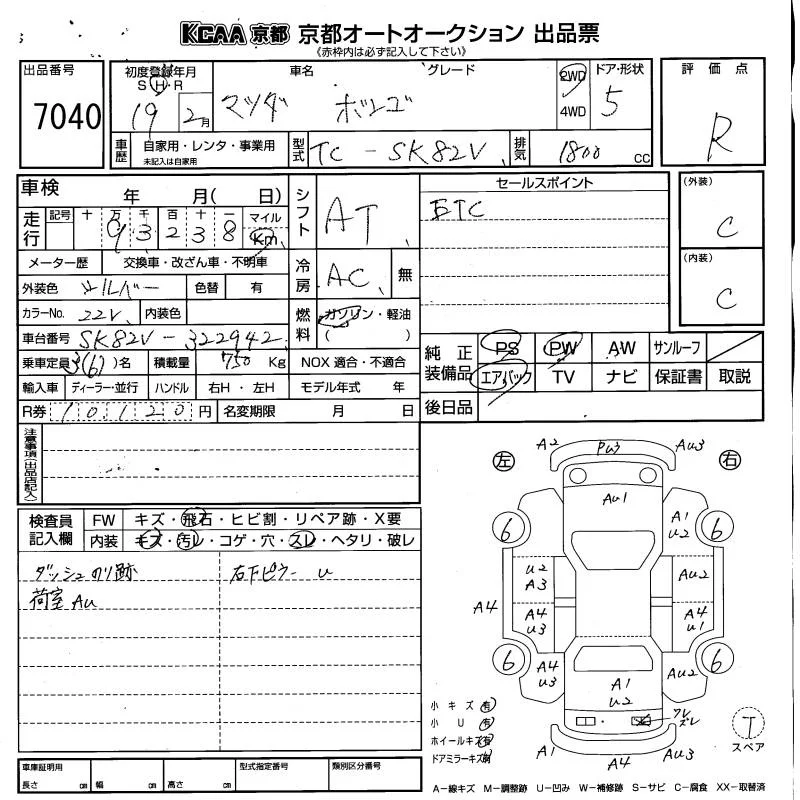 KCAA 京都 京都オートオークション 出品票
《赤枠内は必ず記入して下さい》
出品番号
7040
初度登録年月
S・H・R
19 2月
車名
マツダ ボンゴ
グレード
2WD
4WD
ドア・形状
5
評価点
R
車歴
自家用・レンタ・事業用
未記入は自家用
型式
TC-SK82V
排気
1800 CC
車検 年 月( 日)
走行
記号 十 万 千 百 十 一 マイル
93238 Km
シフト
AT
セールスポイント
ETC
(外装)
C
(内装)
C
メーター歴 交換車・改ざん車・不明車
外装色 シルバー 色替 有
カラーNo. 22V 内装色
冷房
AC 無
燃料
ガソリン・軽油
( )
車台番号 SK82V-322942
乗車定員 3(6)名 積載量 750 Kg NOX 適合・不適合
輸入車 ディーラー・並行 ハンドル 右H・左H モデル年式 年
R券 10120円 名変期限 月 日
純正装備品
PS PW AW サンルーフ
エアバック TV ナビ 保証書 取説
後日品
注意事項(出品店記入)
検査員記入欄
FW キズ・飛石・ヒビ割・リペア跡・X要
内装 キズ・汚レ・コゲ・穴・スレ・ヘタリ・破レ
ダッシュのり跡
荷室 AU
右下ピラー U
左 右
A2 PU3 AU3
AU1
A1
U2
6 6
U2
A3
AU2
A4
A4
U3
A4
U1
6 6
A4
U3
AU2
A1
U2
ワレ
ズレ
A1 A4 AU3
小キズ 有
小U 有
ホイールキズ 有
ドアミラーキズ 有
T
スペア
車庫証明用
長さ cm 幅 cm 高さ cm
型式指定番号
類別区分番号
A-線キズ M-調整跡 U-凹み W-補修跡 S-サビ C-腐食 XX-取替済